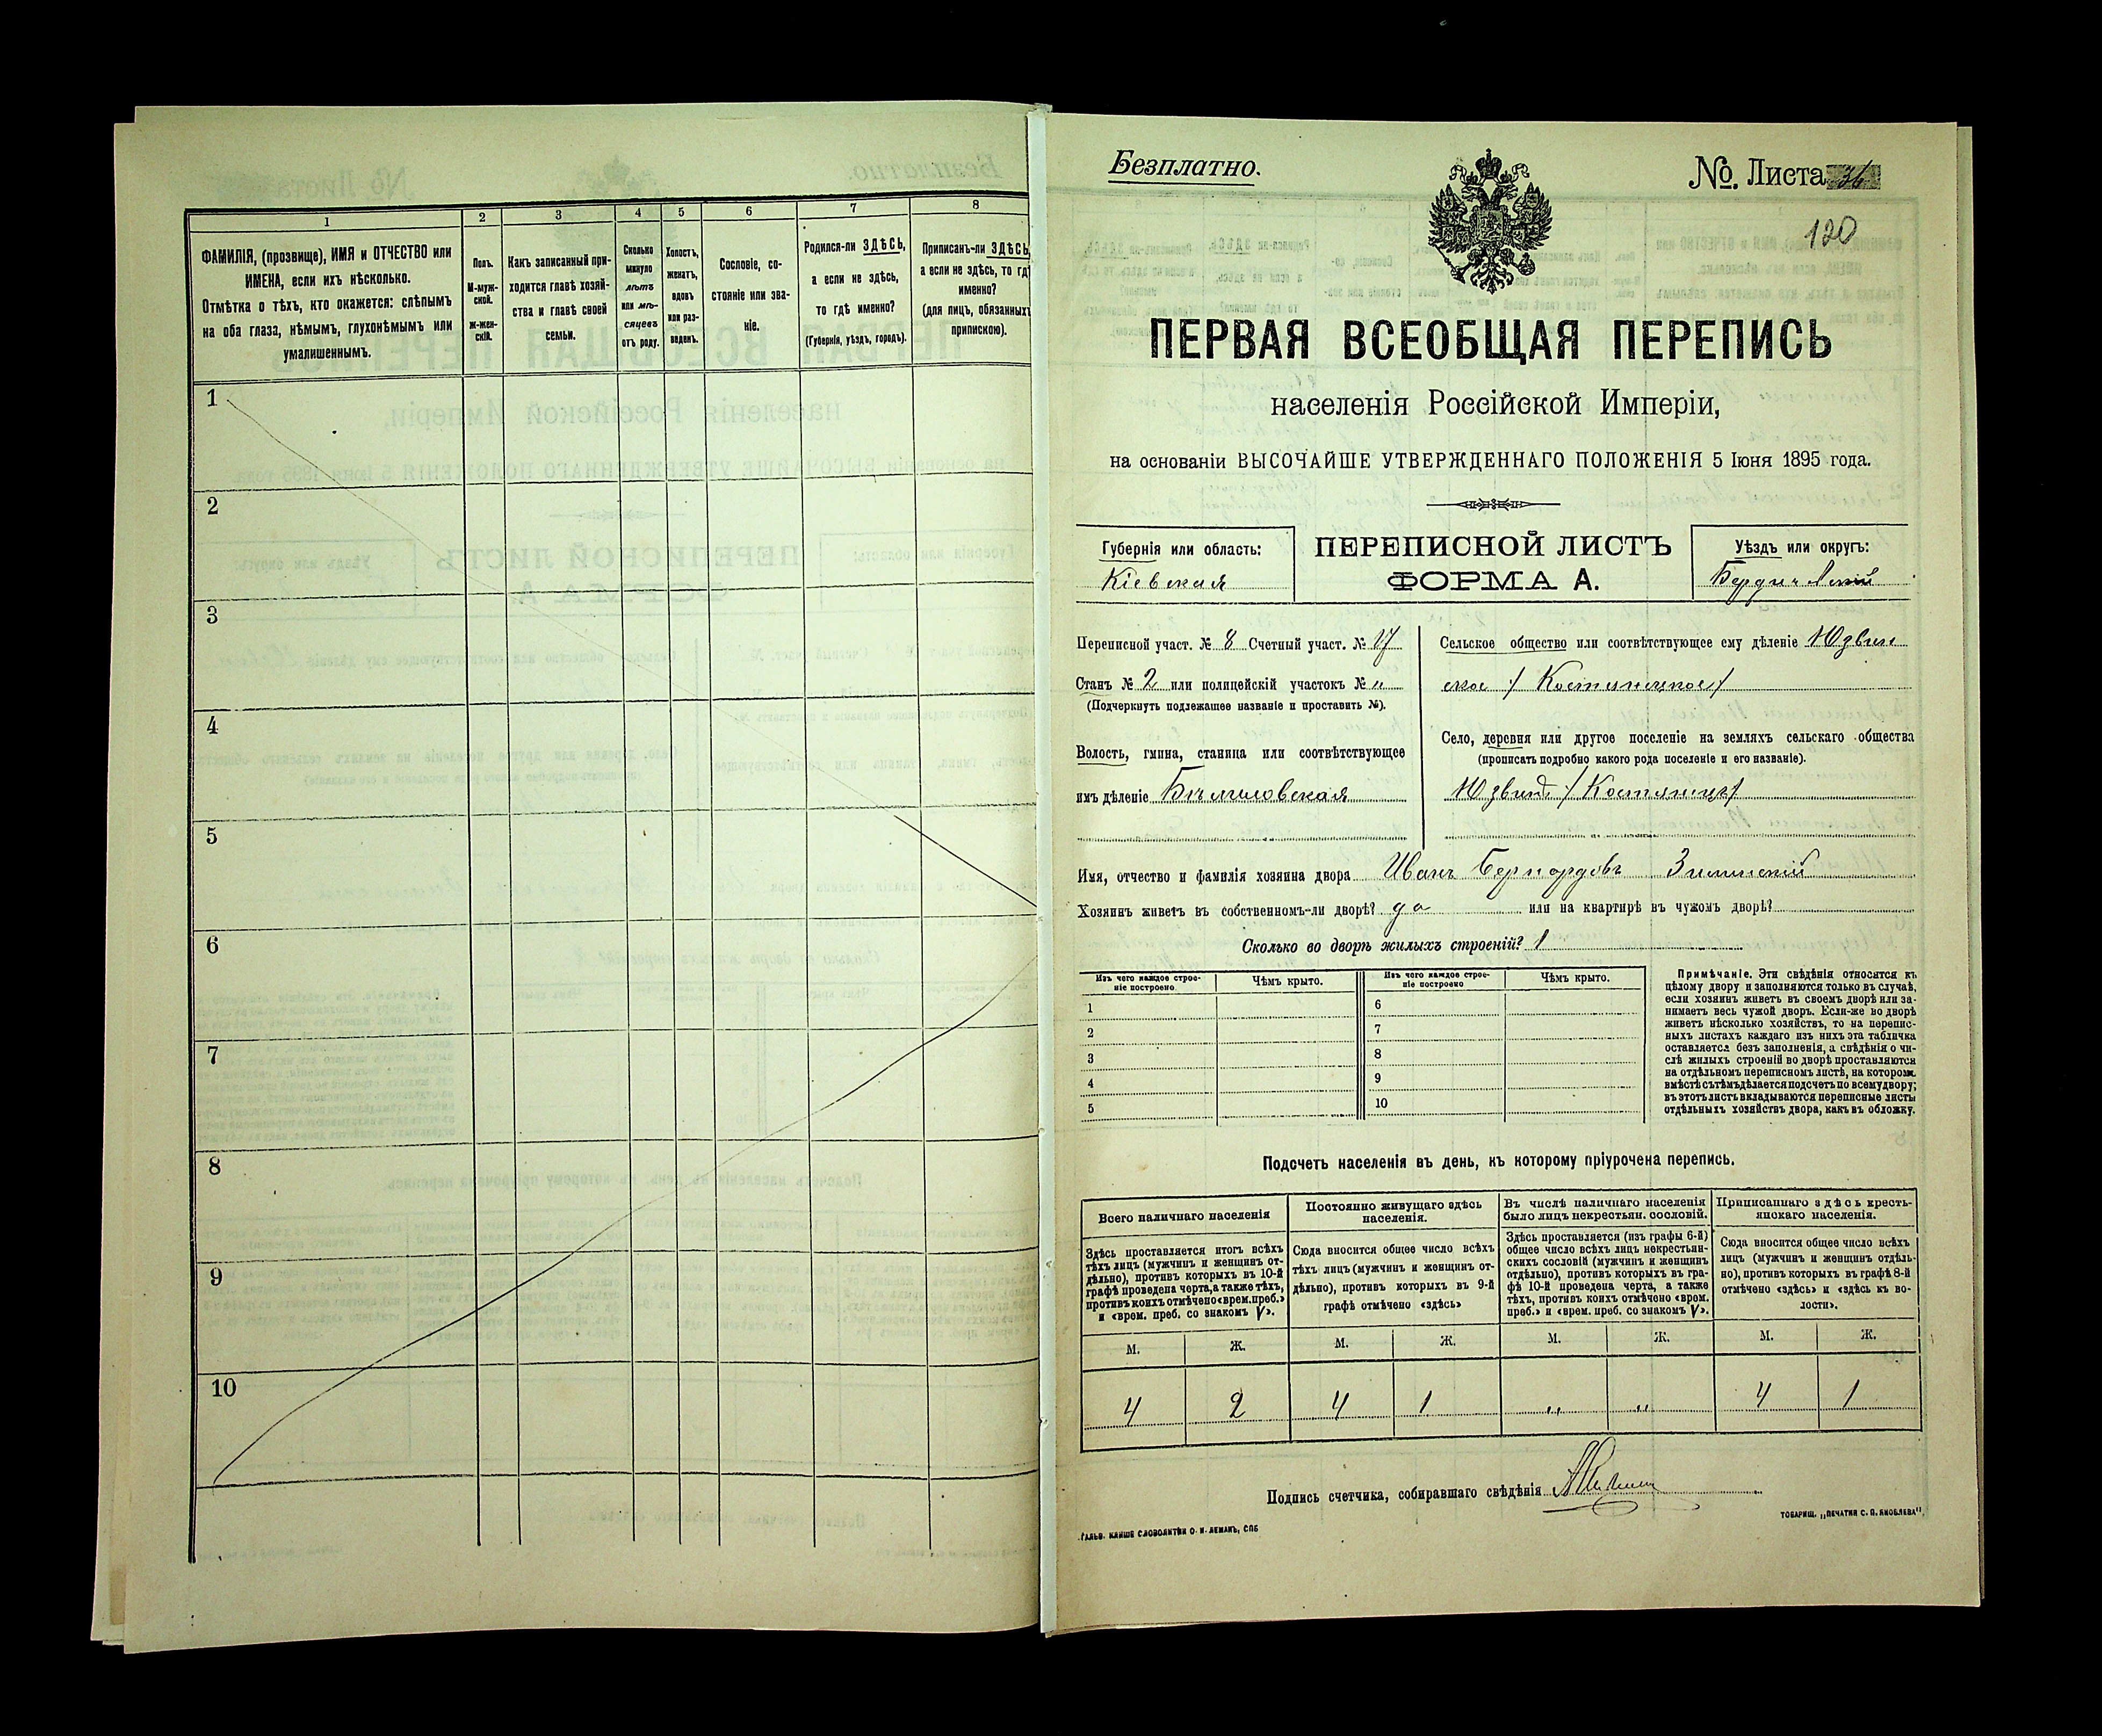 1
2
3
4
5
6
7
8
ФАМИЛІЯ, (прозвище), ИМЯ и ОТЧЕСТВО или
ИМЕНА, если ихъ нѣсколько.
Отмѣтка о тѣхъ, кто окажется: слѣпымъ
на оба глаза, нѣмымъ, глухонѣмымъ или
умалишеннымъ.
Полъ.
М-муж-
ской.
ж-жен-
скій.
Какъ записанный при-
ходится главѣ хозяй-
ства и главѣ своей
семьи.
Сколько
минуло
лѣтъ
или мѣ-
сяцевъ
отъ роду.
Холостъ,
женатъ,
вдовъ
или раз-
веденъ.
Сословіе, со-
стояніе или зва-
ніе.
Родился-ли ЗДѢСЬ,
а если не здѣсь,
то гдѣ именно?
(Губернія, уѣздъ, городъ).
Приписанъ-ли ЗДѢСЬ,
а если не здѣсь, то гдѣ
именно?
(для лицъ, обязанныхъ
припискою).
1
2
3
4
5
6
7
8
9
10
Безплатно.
№. Листа 36
120
ПЕРВАЯ ВСЕОБЩАЯ ПЕРЕПИСЬ
населенія Россійской Имперіи,
на основаніи ВЫСОЧАЙШЕ УТВЕРЖДЕННАГО ПОЛОЖЕНІЯ 5 Іюня 1895 года.
Губернія или область:
Кіевская
ПЕРЕПИСНОЙ ЛИСТЪ
ФОРМА А.
Уѣздъ или округъ:
Бердичевскій
Переписной участ. № 8 Счетный участ. № 17
Станъ № 2 или полицейскій участокъ № „
(Подчеркнуть подлежащее названіе и проставить №).
Волость, гмина, станица или соотвѣтствующее
имъ дѣленіе Бѣлиловская
Сельское общество или соотвѣтствующее ему дѣленіе Юдвин
ское / Костянецкое /
Село, деревня или другое поселеніе на земляхъ сельскаго общества
(прописать подробно какого рода поселеніе и его названіе).
/ Костянецъ /
Имя, отчество и фамилія хозяина двора Иванъ Бернардовъ Зиминскій
Хозяинъ живетъ въ собственномъ-ли дворѣ? да или на квартирѣ въ чужомъ дворѣ?
Сколько во дворѣ жилыхъ строеній? 1
Изъ чего каждое строе-
ніе построено
Чѣмъ крыто.
Изъ чего каждое строе-
ніе построено
Чѣмъ крыто.
1
2
3
4
5
6
7
8
9
10
Примѣчаніе. Эти свѣдѣнія относятся къ
цѣлому двору и заполняются только въ случаѣ,
если хозяинъ живетъ въ своемъ дворѣ или за-
нимаетъ весь чужой дворъ. Если-же во дворѣ
живетъ нѣсколько хозяйствъ, то на перепис-
ныхъ листахъ каждаго изъ нихъ эта табличка
оставляется безъ заполненія, а свѣдѣнія о чи-
слѣ жилыхъ строеній во дворѣ проставляются
на отдѣльномъ переписномъ листѣ, на которомъ
вмѣстѣ съ тѣмъ дѣлается подсчетъ по всему двору;
въ этотъ листъ вкладываются переписные листы
отдѣльныхъ хозяйствъ двора, какъ въ обложку.
Подсчетъ населенія въ день, къ которому пріурочена перепись.
Всего наличнаго населенія
Постоянно живущаго здѣсь
населенія.
Въ числѣ наличнаго населенія
было лицъ некрестьян. сословій.
Приписаннаго здѣсь кресть-
янскаго населенія.
Здѣсь проставляется итогъ всѣхъ
тѣхъ лицъ (мужчинъ и женщинъ от-
дѣльно), противъ которыхъ въ 10-й
графѣ проведена черта, а также тѣхъ,
противъ коихъ отмѣчено «врем. преб.»
и «врем. преб. со знакомъ V».
Сюда вносится общее число всѣхъ
тѣхъ лицъ (мужчинъ и женщинъ от-
дѣльно), противъ которыхъ въ 9-й
графѣ отмѣчено «здѣсь»
Здѣсь проставляется (изъ графы 6-й)
общее число всѣхъ лицъ некрестьян-
скихъ сословій (мужчинъ и женщинъ
отдѣльно), противъ которыхъ въ гра-
фѣ 10-й проведена черта, а также
тѣхъ, противъ коихъ отмѣчено «врем.
преб.» и «врем. преб. со знакомъ V».
Сюда вносится общее число всѣхъ
лицъ (мужчинъ и женщинъ отдѣль-
но), противъ которыхъ въ графѣ 8-й
отмѣчено «здѣсь» и «здѣсь къ во-
лости».
М. Ж. М. Ж. М. Ж. М. Ж.
4 2 4 1 „ „ 4 1
Подпись счетчика, собиравшаго свѣдѣнія
ГАЛЬВ. КЛИШЕ СЛОВОЛИТНИ О. И. ЛЕМАНЪ, СПБ
ТОВАРИЩ. „ПЕЧАТНЯ С. П. ЯКОВЛЕВА“.